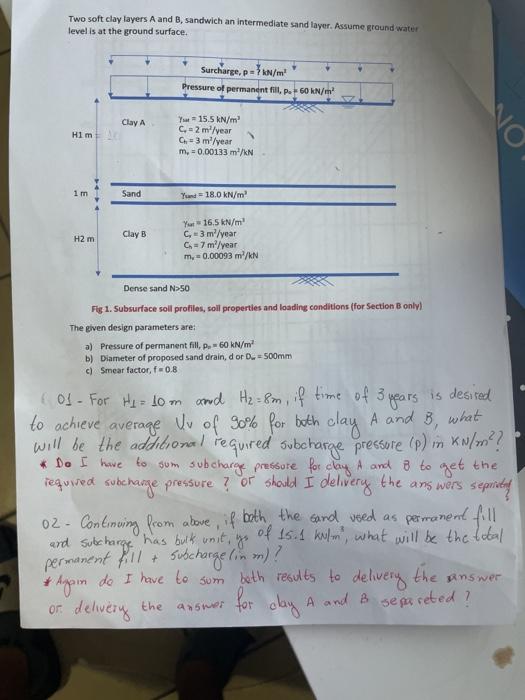 Two soft clay layers A and B, sandwich an intermediate sand layer. Assume ground water
level is at the ground surface.
Surcharge, p = ? kN/m²
Pressure of permanent fill, pₒ = 60 kN/m²
Clay A
γsat = 15.5 kN/m³
Cᵥ = 2 m²/year
Cₕ = 3 m²/year
mᵥ = 0.00133 m²/kN
H1 m
1 m
Sand
γsand = 18.0 kN/m³
H2 m
Clay B
γsat = 16.5 kN/m³
Cᵥ = 3 m²/year
Cₕ = 7 m²/year
mᵥ = 0.00093 m²/kN
Dense sand N>50
Fig 1. Subsurface soil profiles, soil properties and loading conditions (for Section B only)
The given design parameters are:
a) Pressure of permanent fill, pₒ = 60 kN/m²
b) Diameter of proposed sand drain, d or Dw = 500mm
c) Smear factor, f = 0.8
01 - For H1 = 10 m and H2 = 8m, if time of 3 years is desired
to achieve average Uv of 90% for both clay A and B, what
will be the additional required subcharge pressure (p) in KN/m²?
* Do I have to sum subcharge pressure for clay A and B to get the
required subcharge pressure ? or should I delivery the answers
02 - Continuing from above, if both the sand used as permanent fill
and subcharge has bulk unit, γs of 15.1 kN/m³, what will be the total
permanent fill + subcharge (in m) ?
* Again do I have to sum both results to delivery the answer
or delivery the answer for clay A and B separeted ?
NO